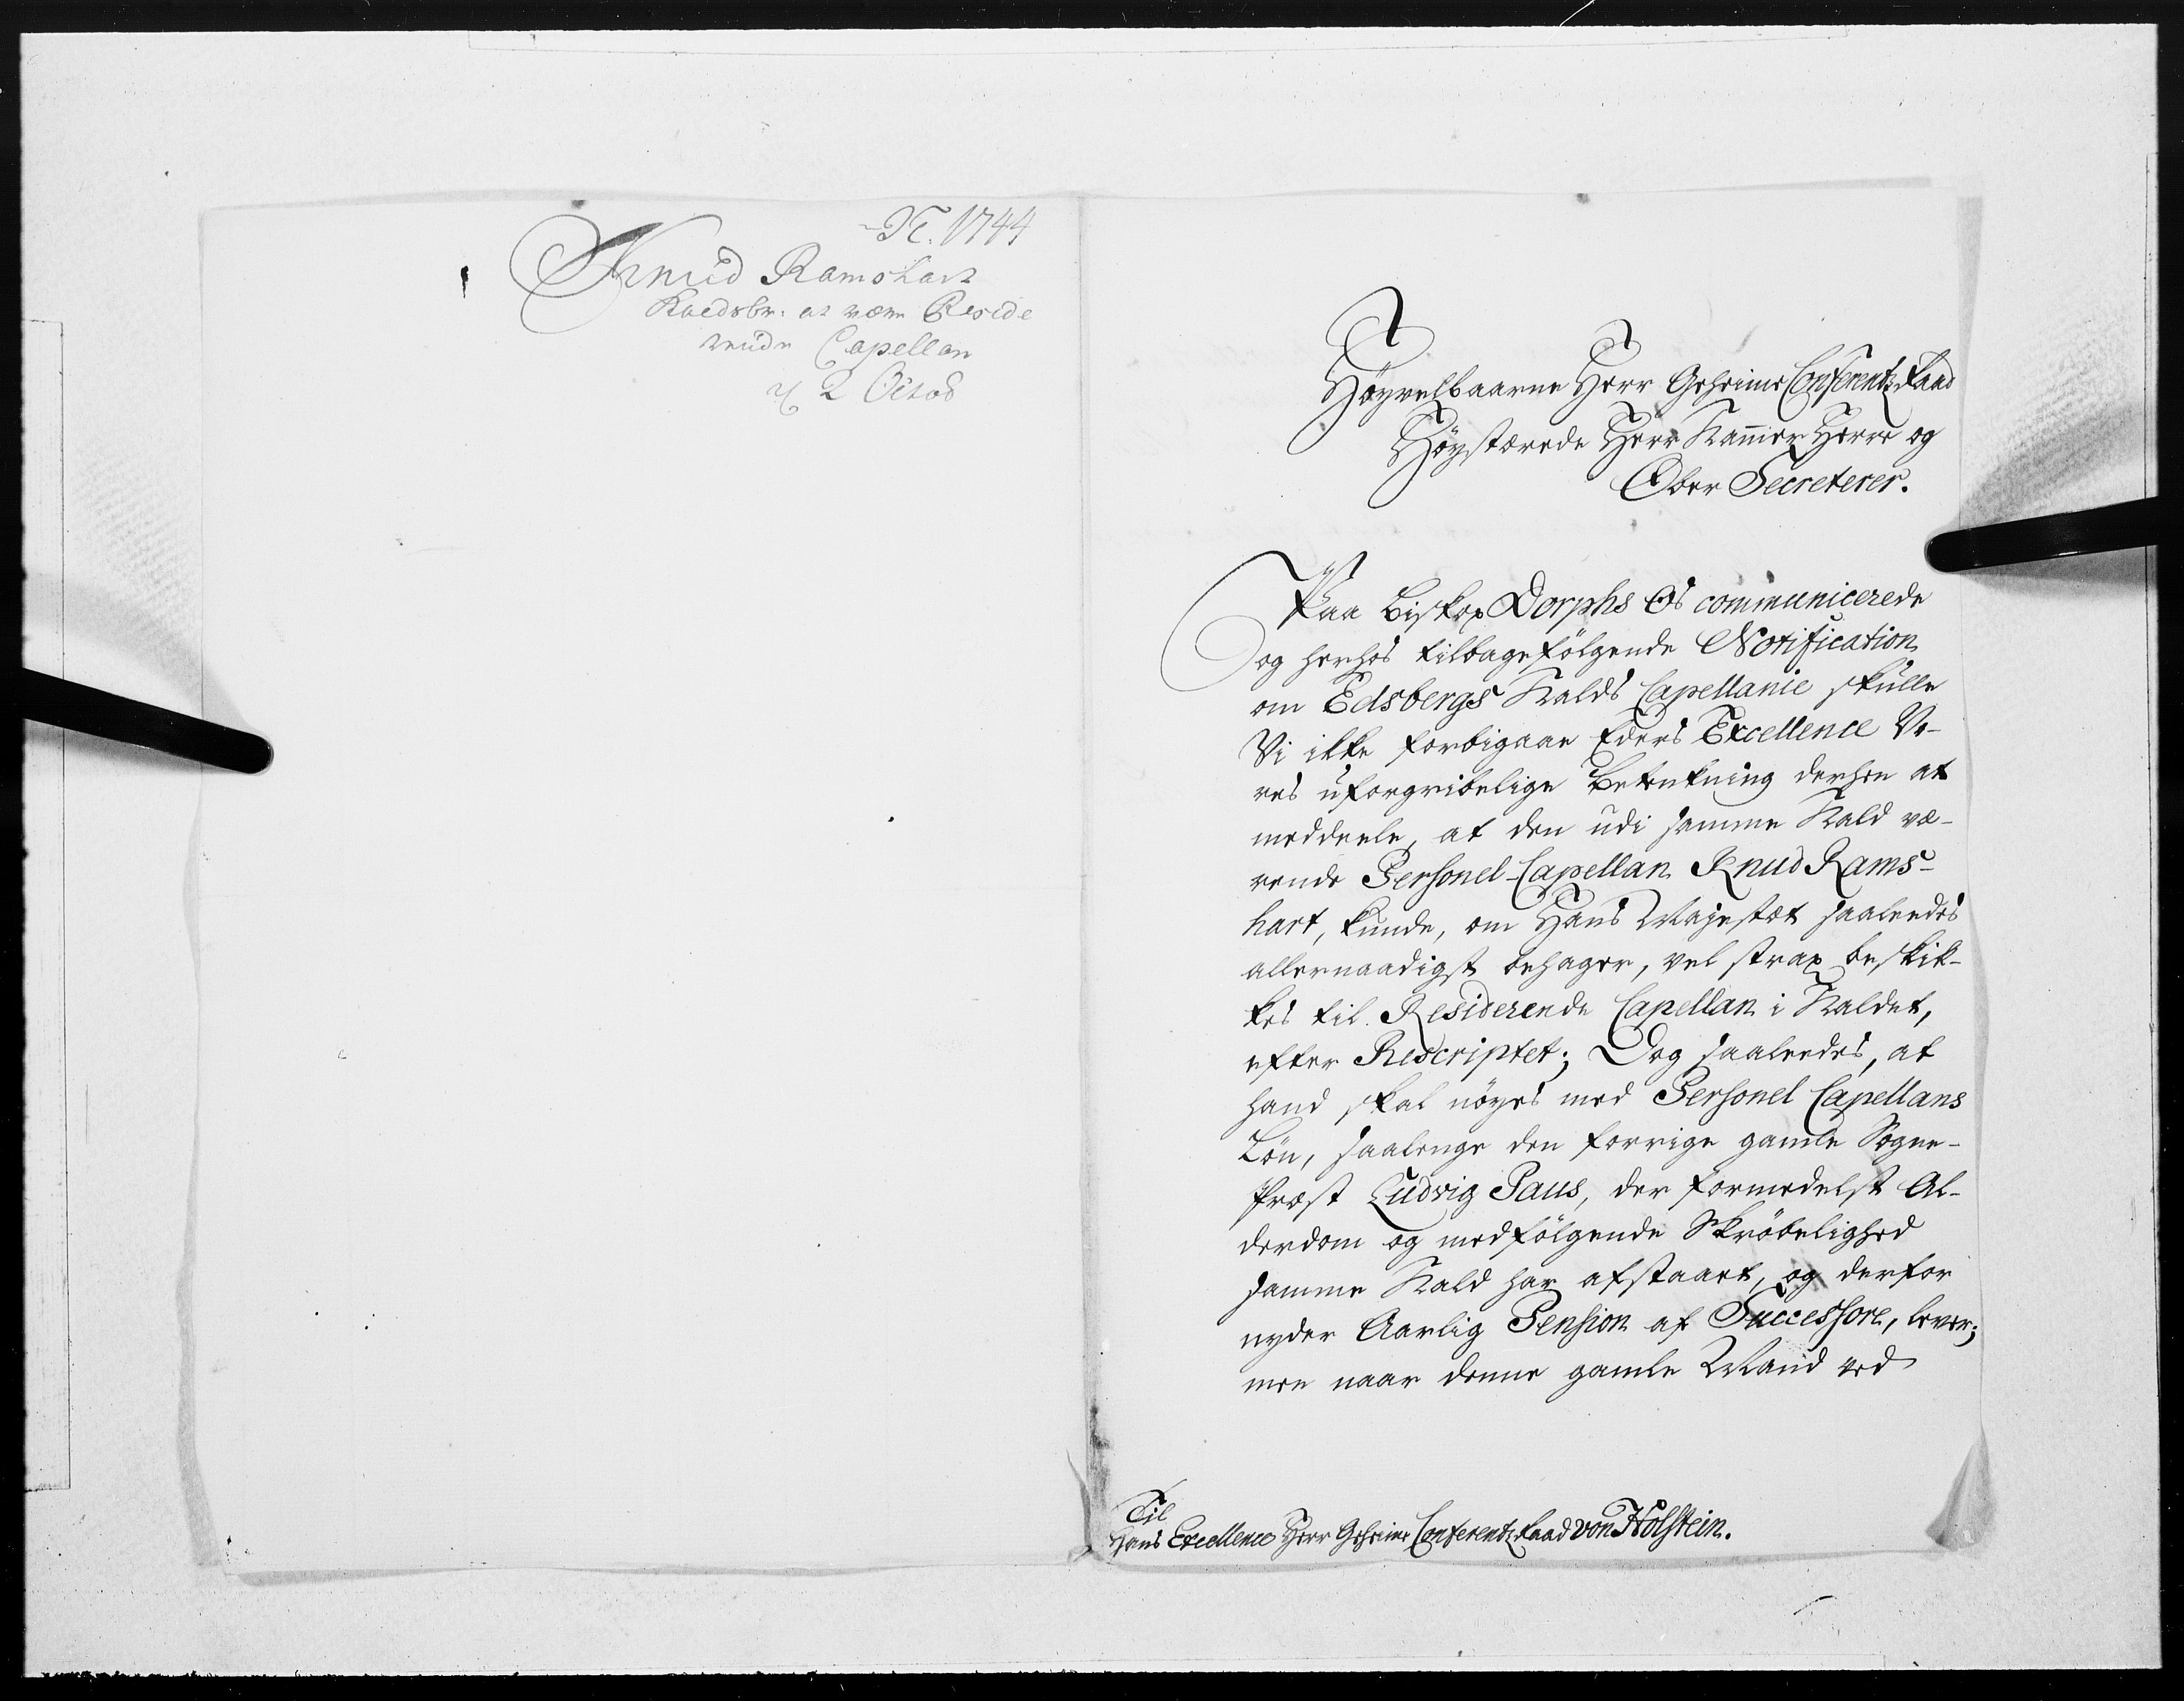 N. 1744
Knud Ramshart
Kaldsbr. at være Reside
rende Capellan
d 2 Octob
Höyvelbaarne Herr Geheime Conferentz Raad
Höystærede Herr Kammer Herre og
Ober Secreterer.
Paa Biskop Dorphs Os communicerede
og herhos tilbagefölgende Notification
om Edsbergs Kalds Capellanie skulle
Vi ikke forbigaae Eders Excellence Vo-
res uforgribelige Betenkning derhen at
meddeele, at den udi samme Kald væ-
rende Personel-Capellan Knud Rams-
hart, kunde, om Hans Majestæt saaleedes
allernaadigst behager, vel strax beskik-
kes til Residerende Capellan i Kaldet,
efter Rescriptet; Dog saaleedes, at
hand skal nöyes med Personel Capellans
Lön, saalenge den forrige gamle Sogne-
Præst Ludvig Paus, der formedelst Al-
derdom og medfölgende Skröbelighed
samme Kald har afstaaet, og derfor
nyder Aarlig Pension af Successore, lever;
men naar denne gamle Mand ved
Til
Hans Excellence Herr Geheime Conferentz Raad von Holstein.